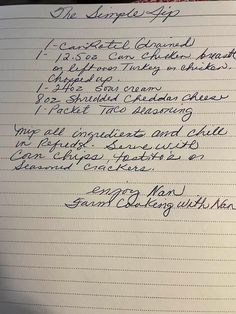 The Simple Dip
1 - Can Rotel (drained)
1 - 12.5 oz Can Chicken breast
or left over Turkey or chicken.
Chopped up.
1 - 24oz Sour cream
8oz Shredded Cheddar Cheese
1 Packet Taco Seasoning
Mix all ingredients and chill
in Refredg. Serve with
Corn Chips, tostitos or
Seasoned Crackers.
enjoy Nan
Farm Cooking With Nan